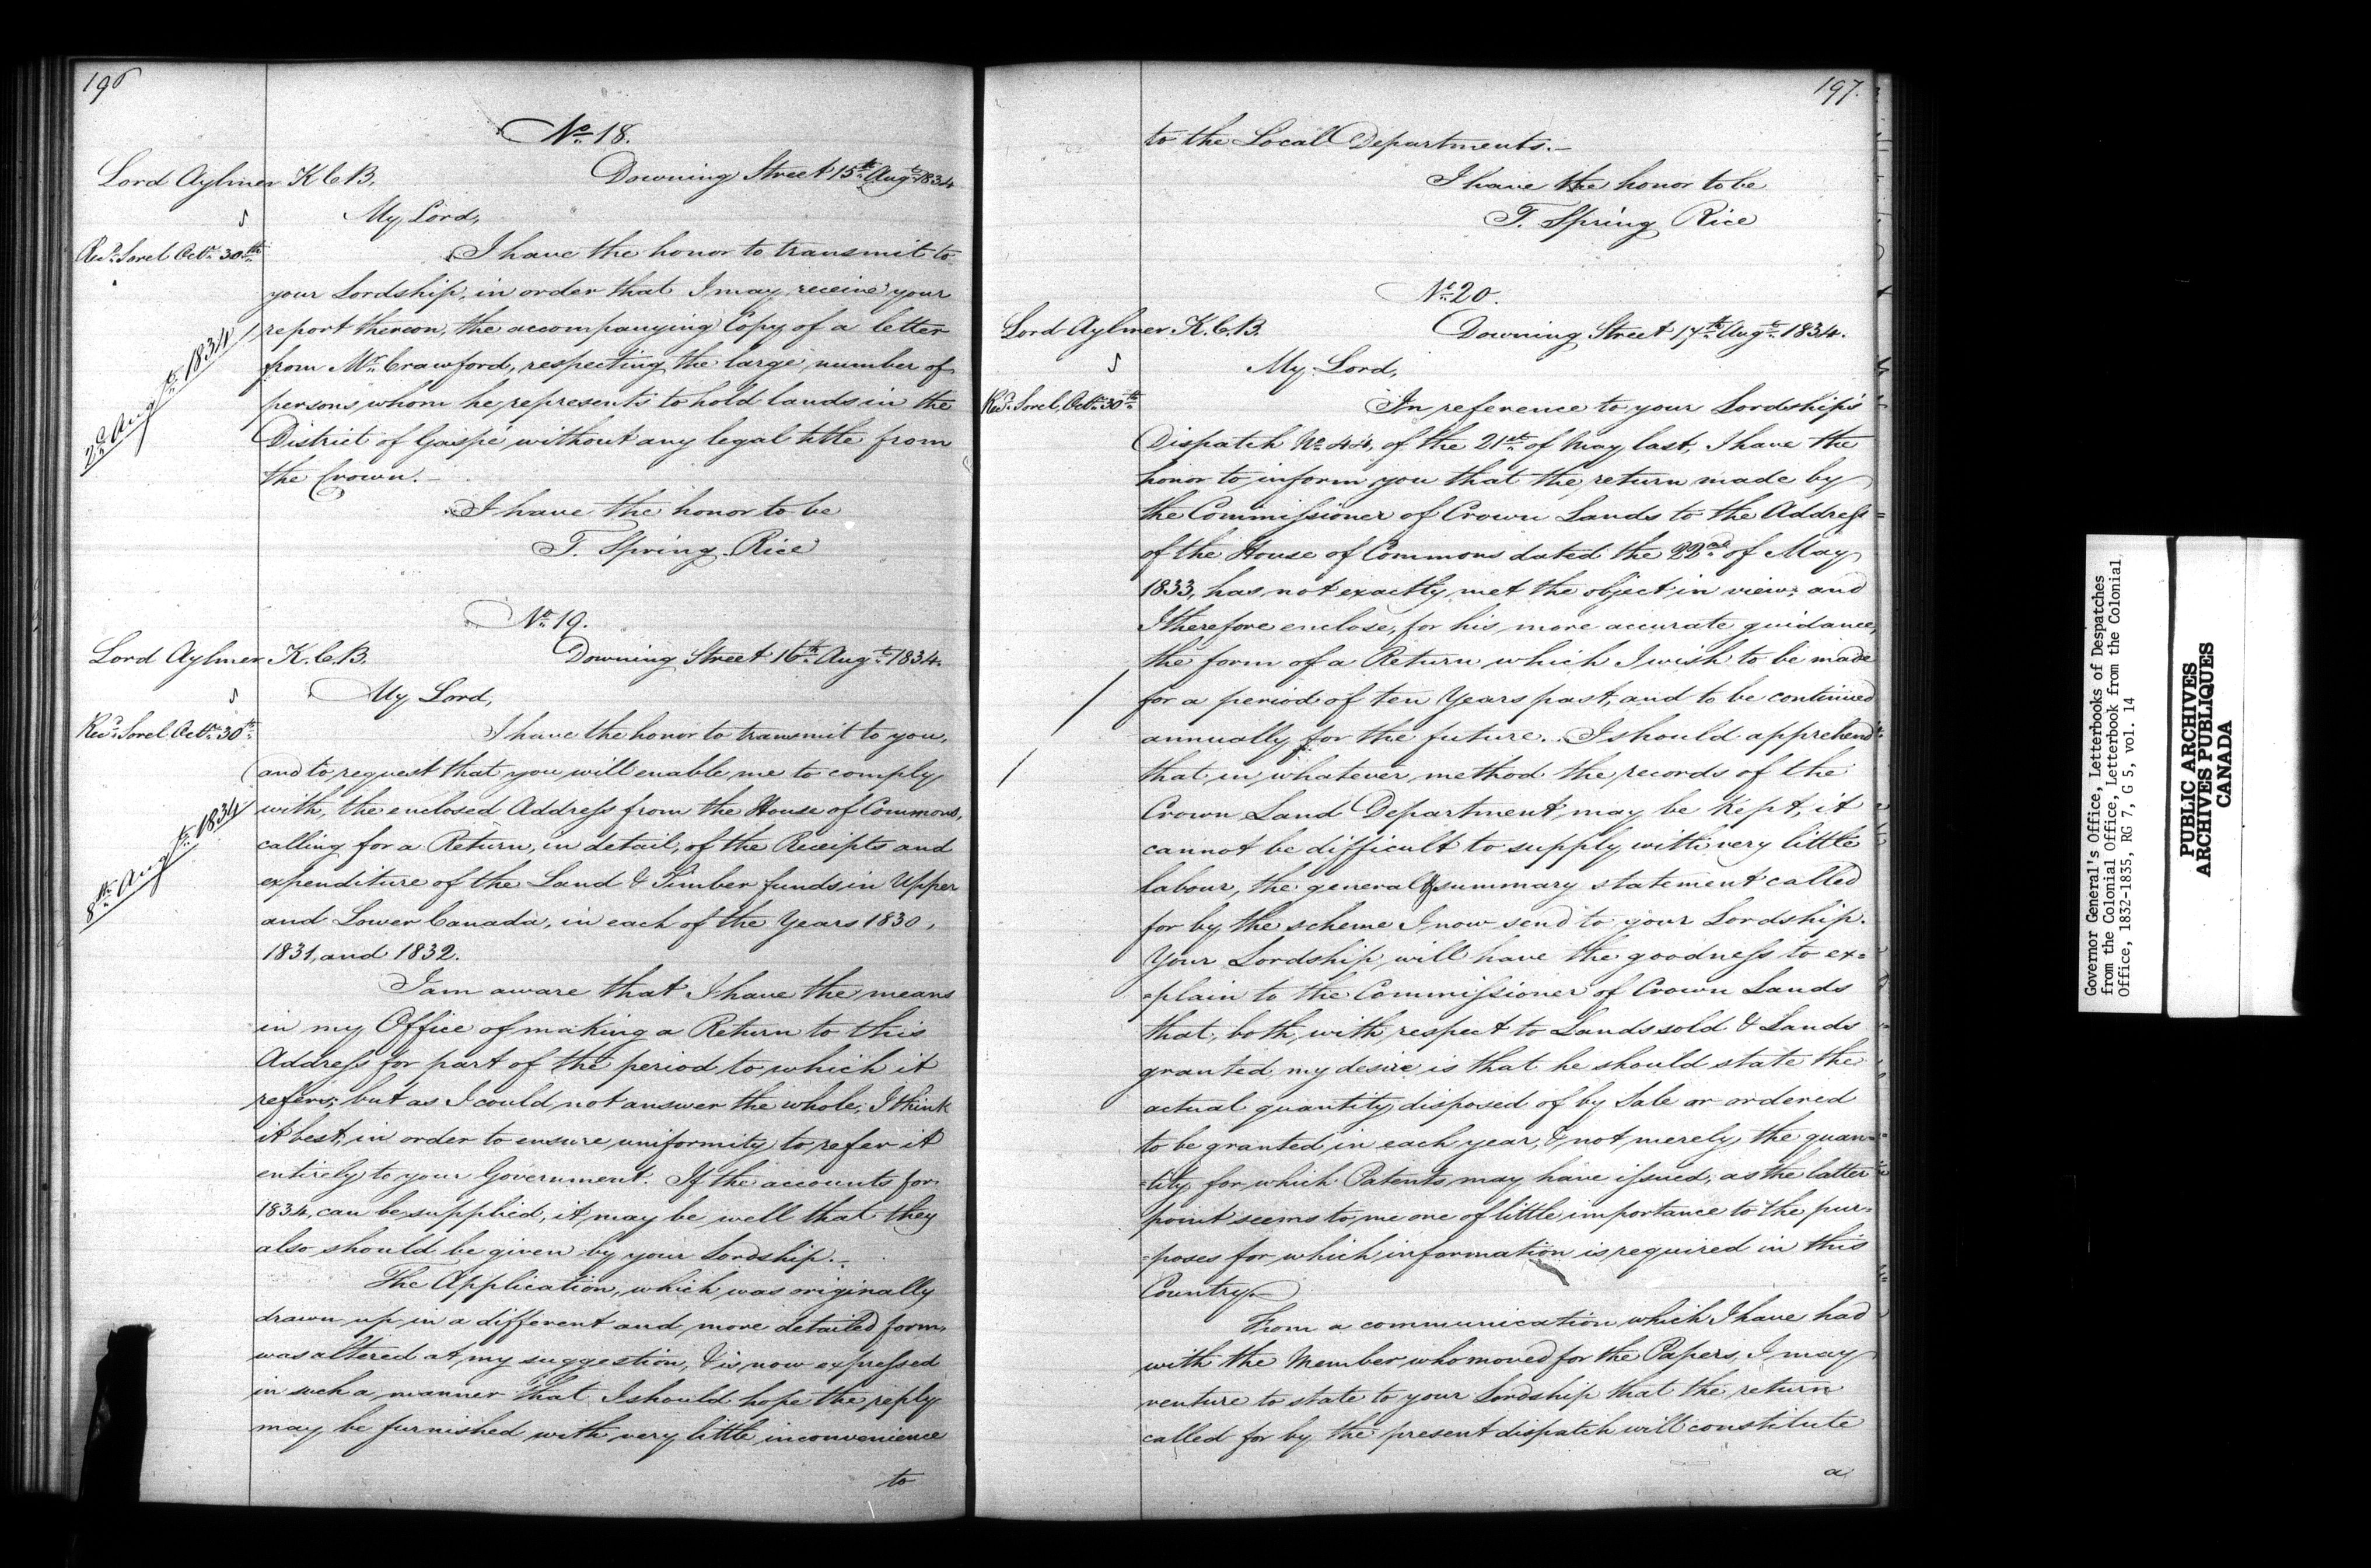 196
No. 18.
Lord Aylmer K.C.B. Downing Street 15th Augt. 1834
My Lord,
Recd. Sorel Octr. 30th
I have the honor to transmit to
your Lordship, in order that I may receive your
report thereon, the accompanying Copy of a letter
2d Augt. 1834
from Mr. Crawford, respecting the large number of
persons whom he represents to hold lands in the
District of Gaspé, without any legal title from
the Crown.
I have the honor to be
T. Spring Rice
No. 19.
Lord Aylmer K.C.B. Downing Street 16th Augt. 1834.
My Lord,
Recd. Sorel Octr. 30th
I have the honor to transmit to you,
and to request that you will enable me to comply
with, the enclosed Address from the House of Commons,
8th Augt. 1834
calling for a Return, in detail, of the Receipts and
expenditure of the Land & Timber funds in Upper
and Lower Canada, in each of the Years 1830,
1831, and 1832.
I am aware that I have the means
in my Office of making a Return to this
Address for part of the period to which it
refers; but as I could not answer the whole, I think
it best, in order to ensure uniformity to refer it
entirely to your Government. If the accounts for
1834, can be supplied, it may be well that they
also should be given by your Lordship.—
The Application, which was originally
drawn up in a different and more detailed form,
was altered at my suggestion, & is now expressed
in such a manner that I should hope the reply
may be furnished with very little inconvenience
to
197.
to the Local Departments.—
I have the honor to be
T. Spring Rice
No. 20.
Lord Aylmer K.C.B. Downing Street 17th Augt. 1834.
My Lord,
Recd. Sorel, Octr. 30th
In reference to your Lordship's
Dispatch No. 44, of the 21st of May last, I have the
honor to inform you that the return made by
the Commissioner of Crown Lands to the Address
of the House of Commons dated the 22nd of May
1833, has not exactly met the object in view; and
I therefore enclose, for his more accurate guidance,
the form of a Return which I wish to be made
for a period of ten Years past, and to be continued
annually for the future. I should apprehend
that in whatever method the records of the
Crown Land Department may be kept, it
cannot be difficult to supply with very little
labour, the general & summary statement called
for by the scheme I now send to your Lordship.
Your Lordship will have the goodness to ex=
=plain to the Commissioner of Crown Lands
that, both with respect to Lands sold & Lands
granted, my desire is that he should state the
actual quantity disposed of by Sale or ordered
to be granted in each year, & not merely the quan=
=tity for which Patents may have issued, as the latter
point seems to me one of little importance to the pur=
=poses for which information is required in this
Country.—
From a communication which I have had
with the Member who moved for the Papers, I may
venture to state to your Lordship that the return
called for by the present dispatch will constitute
a
Governor General's Office, Letterbooks of Despatches
from the Colonial Office, Letterbook from the Colonial
Office, 1832-1835, RG 7, G 5, vol. 14
PUBLIC ARCHIVES
ARCHIVES PUBLIQUES
CANADA